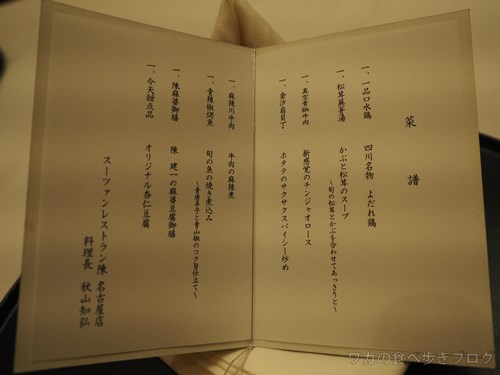 菜 譜
一、一品口水鶏 四川名物 よだれ鶏
一、松茸蕪菁湯 かぶと松茸のスープ
～旬の松茸とかぶを合わせてあっさりと～
一、真空青椒牛肉 新感覚のチンジャオロース
一、金沙扇貝丁 ホタテのサクサクスパイシー炒め
一、麻辣川牛肉 牛肉の麻辣煮
一、青辣椒燜魚 旬の魚の焼き煮込み
～青唐辛子と青山椒のコク旨仕立て～
一、陳麻婆御膳 陳 建一の麻婆豆腐御膳
一、今天甜点品 オリジナル杏仁豆腐
スーツァンレストラン陳 名古屋店
料理長 秋山知弘
ワカの食べ歩きブログ